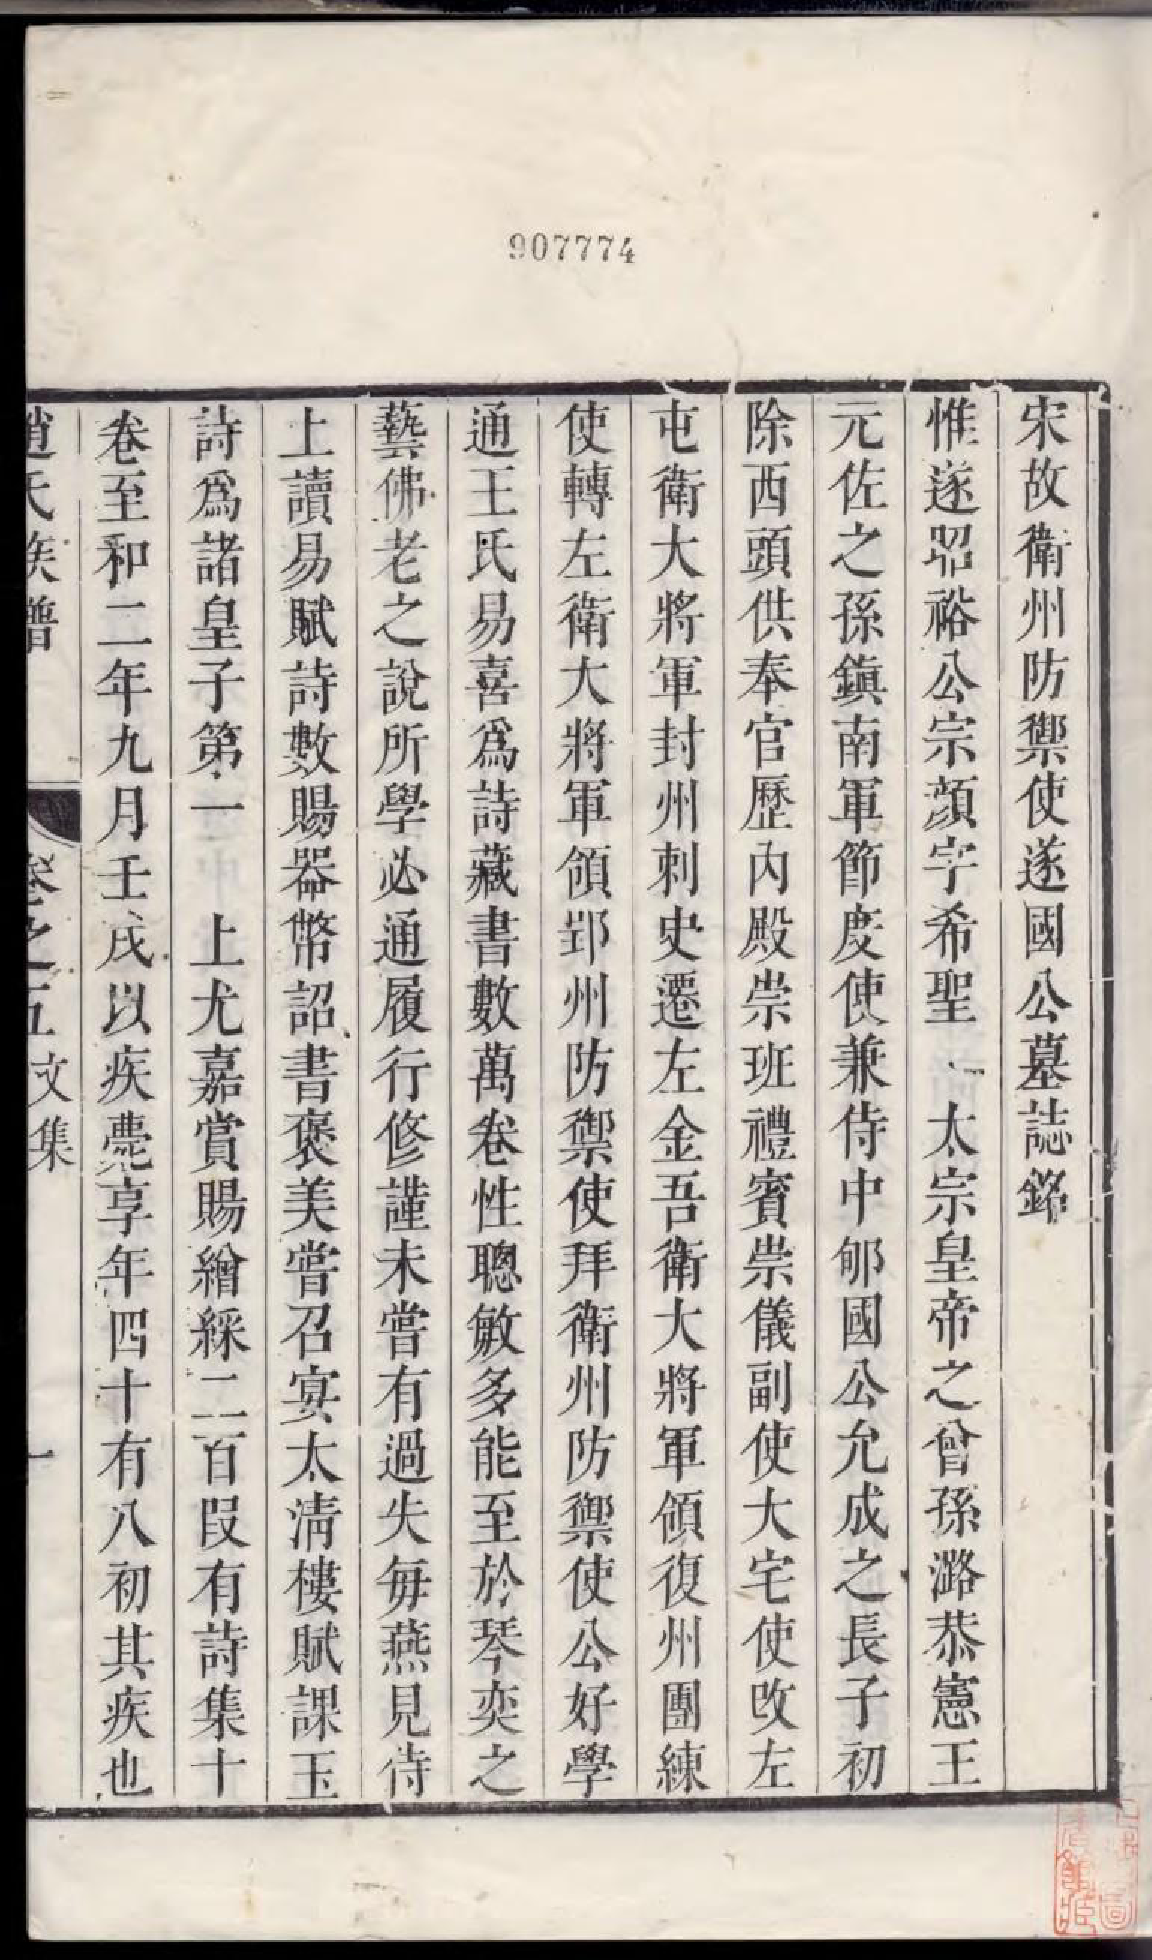 907774
宋故衛州防禦使遂國公墓誌銘
惟遂昭裕公宗顔字希聖　太宗皇帝之曾孫潞恭憲王
元佐之孫鎭南軍節度使兼侍中郇國公允成之長子初
除西頭供奉官歷內殿崇班禮賓崇儀副使大宅使改左
屯衛大將軍封州刺史遷左金吾衛大將軍領復州團練
使轉左衛大將軍領郢州防禦使拜衛州防禦使公好學
通王氏易喜爲詩藏書數萬卷性聰敏多能至於琴奕之
藝佛老之說所學必通履行修謹未嘗有過失每燕見侍
上讀易賦詩數賜器幣詔書褒美嘗召宴太清樓賦課玉
詩爲諸皇子第一　上尤嘉賞賜繒綵二百段有詩集十
卷至和二年九月壬戌以疾薨享年四十有八初其疾也
趙氏族譜　卷之五　文集　一